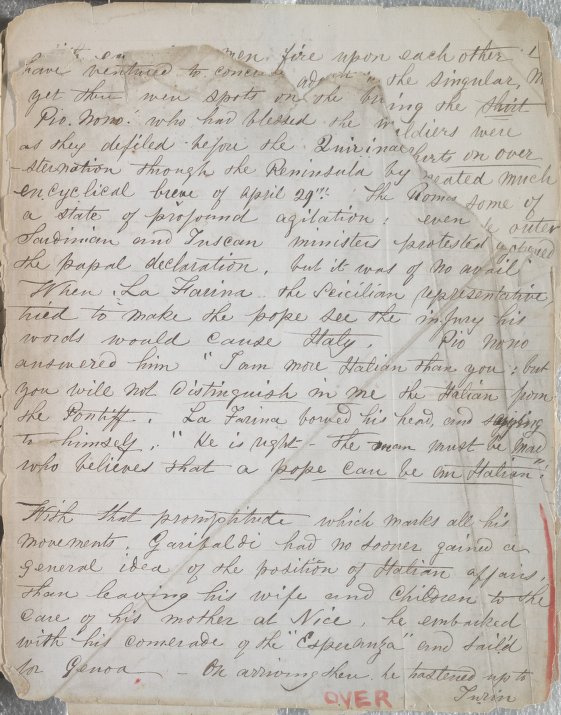 men fire upon each other
have ventured to the singular,
yet their men spots on the bring the shirt
Pio. Nono. who had blessed the soldiers were
as they defiled before the Quirinal shirts on over
-sternation through the Peninsula by created much
encyclical breve of April 29th. The Romes some of
a state of profound agitation; even outer
Sardinian and Tuscan ministers protested
the papal declaration, but it was of no avail
When, La Farina the Scicilian representative
tried to make the pope see the injury his
words would cause Italy. Pio Nono
answered him "I am more Italian than you; but
you will not distinguish in me the Italian from
the Pontiff. La Farina bowed his head, and saying
to himself, "He is right the man must be mad
who believes that a pope can be an Italian"!
With that promptitude which marks all his
movements; Garibaldi had no sooner gained a
general idea of the position of Italian affairs,
than leaving his wife and Children to the
Care of his mother at Nice, he embarked
with his comerade of the "Esperanza" and sail'd
for Genoa — On arriving then he hastened up to
Turin
OVER